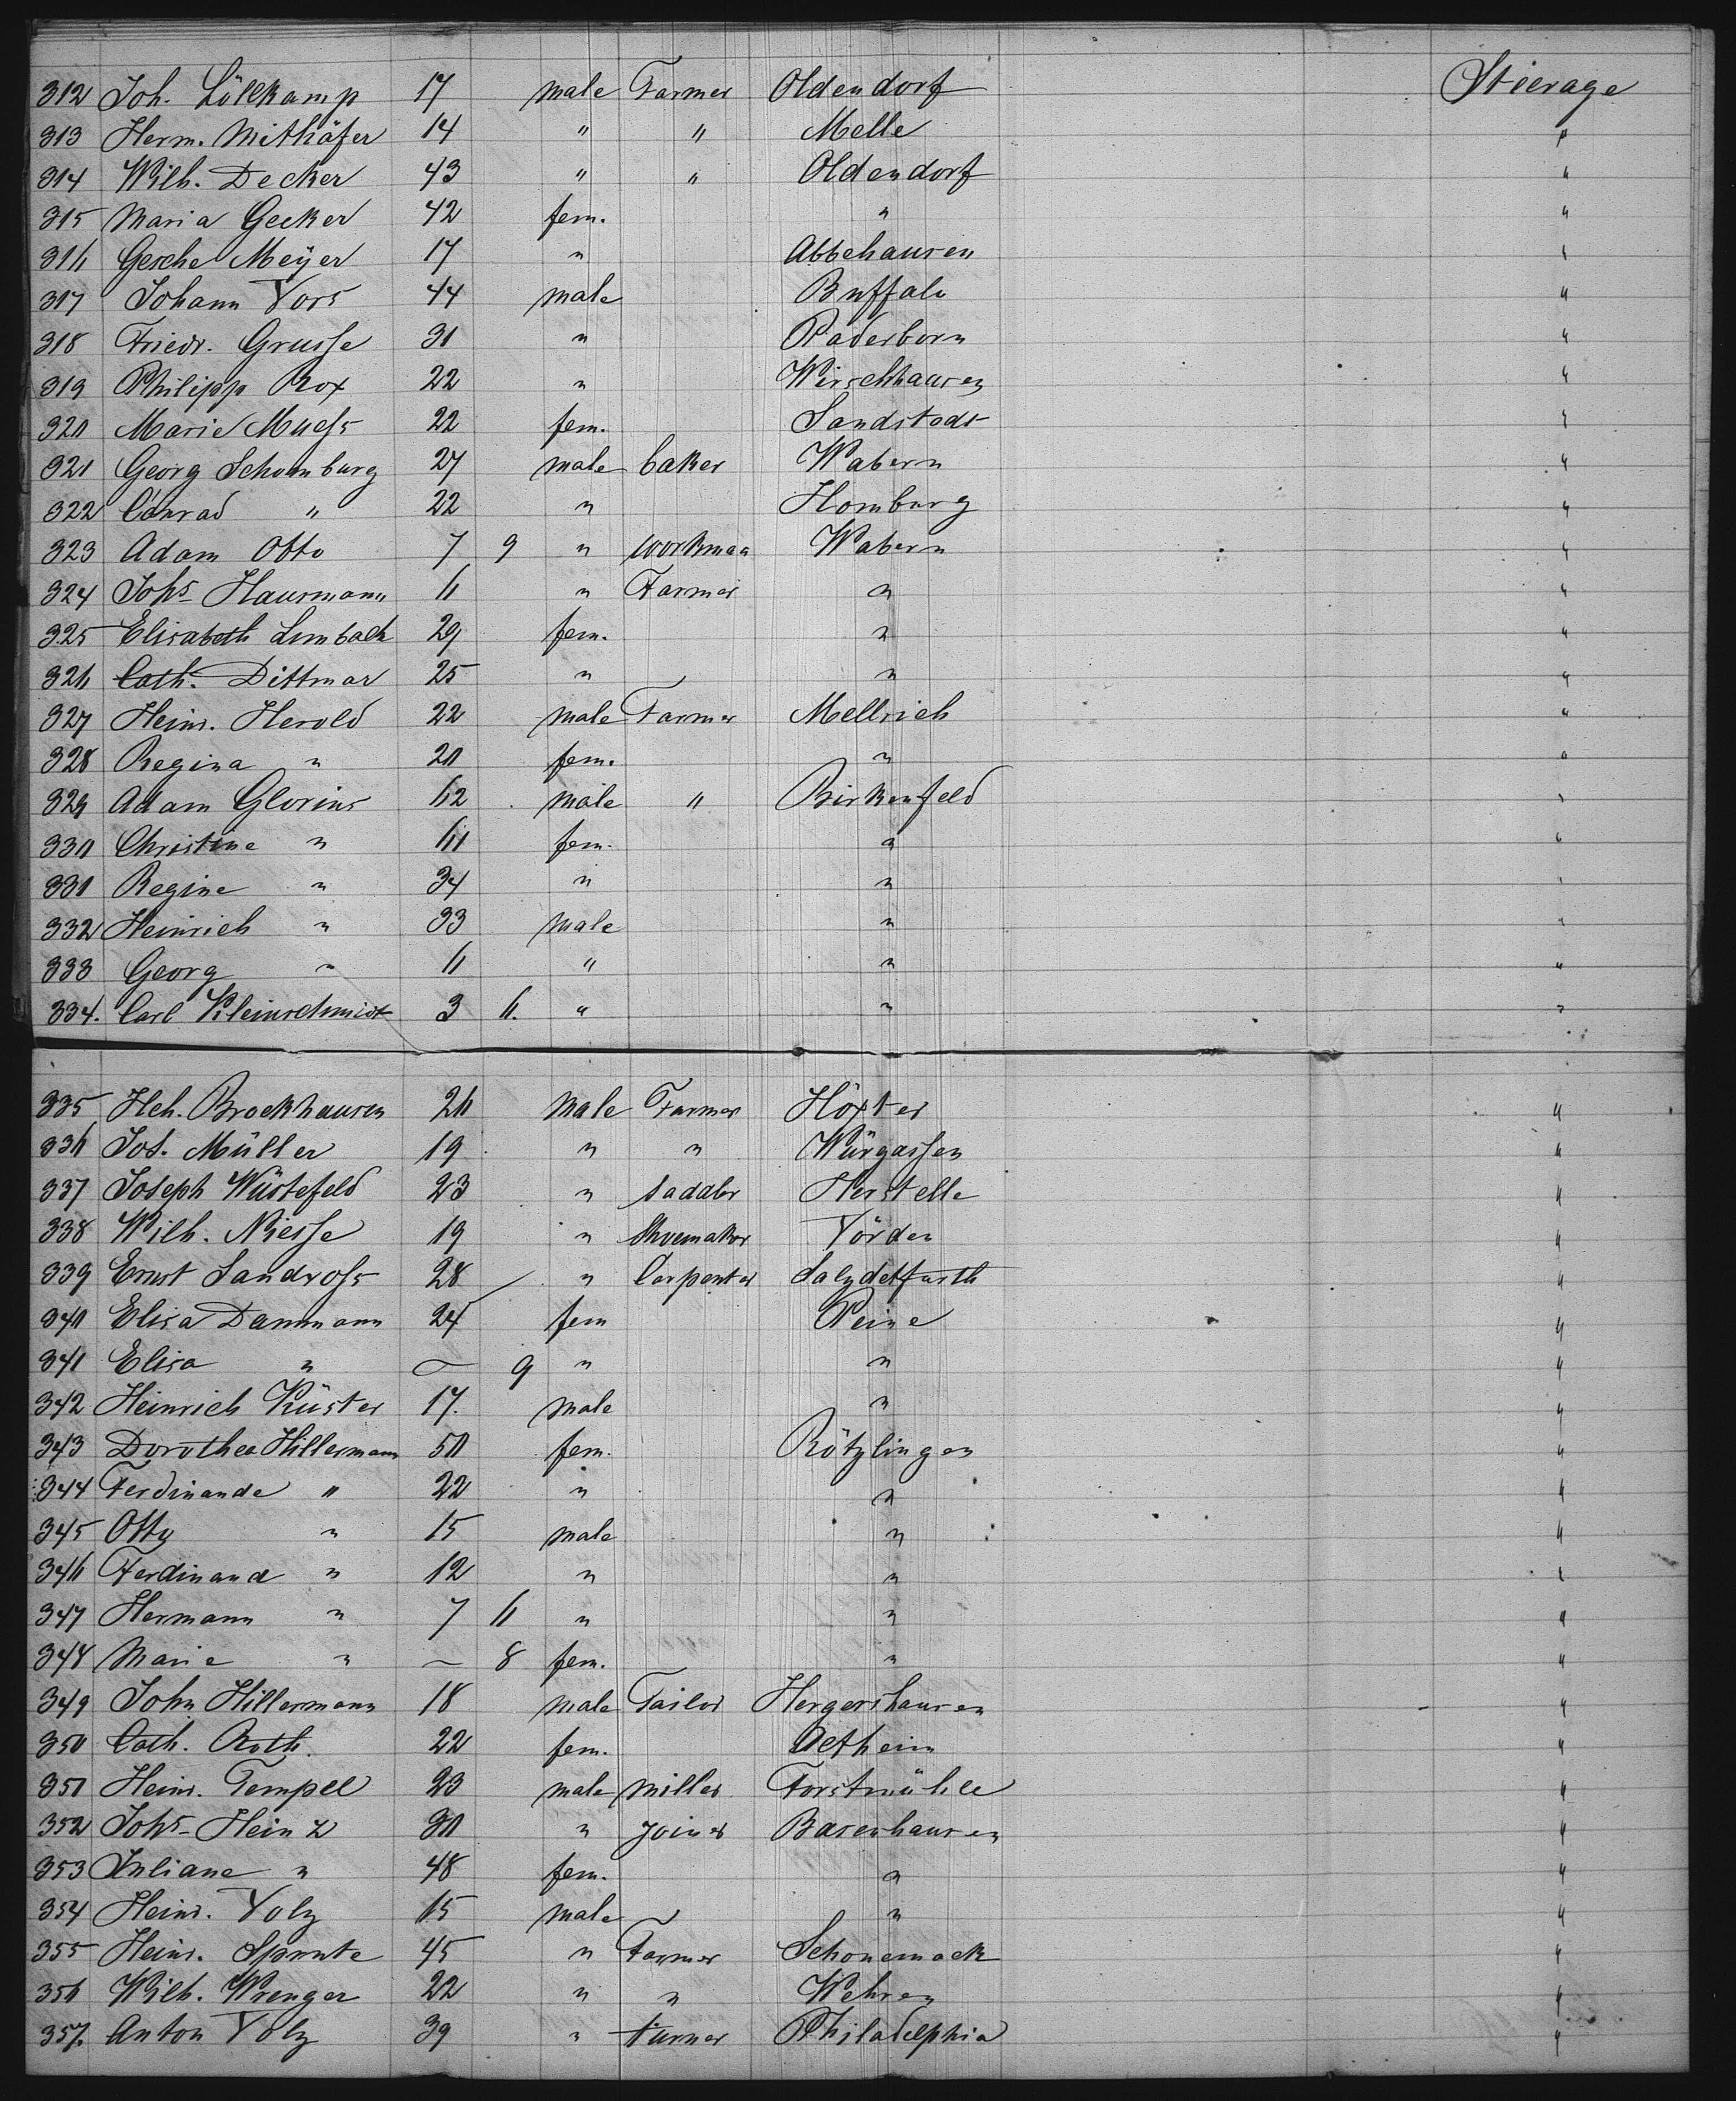 312 Joh. Löllkamp 17 male Farmer Oldendorf Steerage
313 Herm. Mithöfer 14 " " Melle "
314 Wilh. Decker 43 " " Oldendorf "
315 Maria Gecker 42 fem. " "
316 Gesche Meÿer 17 " Abbehausen "
317 Johann Vors 44 male Buffalo "
318 Friedr. Grusse 31 " Paderborn "
319 Philipp Rox 22 " Wirschhausen "
320 Marie Muess 22 fem. Sandstedt "
321 Georg Schomburg 27 male baker Wabern "
322 Conrad " 22 " Homburg "
323 Adam Otto 7 9 " workman Wabern "
324 Johs Hausmann 6 " Farmer " "
325 Elisabeth Limbach 29 fem. " "
326 Cath. Dittmar 25 " " "
327 Heinr. Herold 22 male Farmer Mellrich "
328 Regina " 20 fem. " "
329 Adam Glorius 62 male " Birkenfeld "
330 Christine " 60 fem. " "
331 Regine " 34 " " "
332 Heinrich " 33 male " "
333 Georg " 6 " " "
334. Carl Kleinschmidt 3 6. " " "
335 Hch. Brockhausen 26 male Farmer Höxter "
336 Jos. Müller 19 " " Würgassen "
337 Joseph Wüstefeld 23 " Saddler Herstelle "
338 Wilh. Niesse 19 " Shoemaker Vörden "
339 Ernst Sandross 28 " Carpenter Salzdetfurth "
340 Elisa Dammann 24 fem Peine "
341 Elisa " — 9 " " "
342 Heinrich Küster 17. male " "
343 Dorothea Hillermann 50 fem. Rötzlingen "
344 Ferdinande " 22 " " "
345 Otty " 15 male " "
346 Ferdinand " 12 " " "
347 Hermann " 7 6 " " "
348 Marie " — 8 fem. " "
349 John Hillermann 18 male Tailor Hergershausen "
350 Cath. Roth. 22 fem. Aetheim "
351 Heinr. Tempel 23 male miller Forstmühle "
352 Johs Heinz 30 " joiner Basenhausen "
353 Juliane " 48 fem. " "
354 Heinr. Volz 15 male " "
355 Heinr. Sprute 45 " Farmer Schonemack "
356 Wilh. Wrenger 22 " " Wehren "
357. Anton Volz 39 " turner Philadelphia "